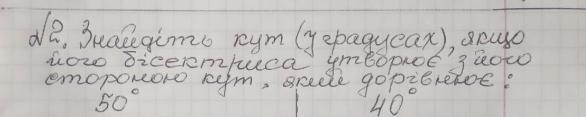 №2. Знайдіть кут (у градусах), якщо
його бісектриса утворює з його
стороною кут, який дорівнює:
50° | 40°